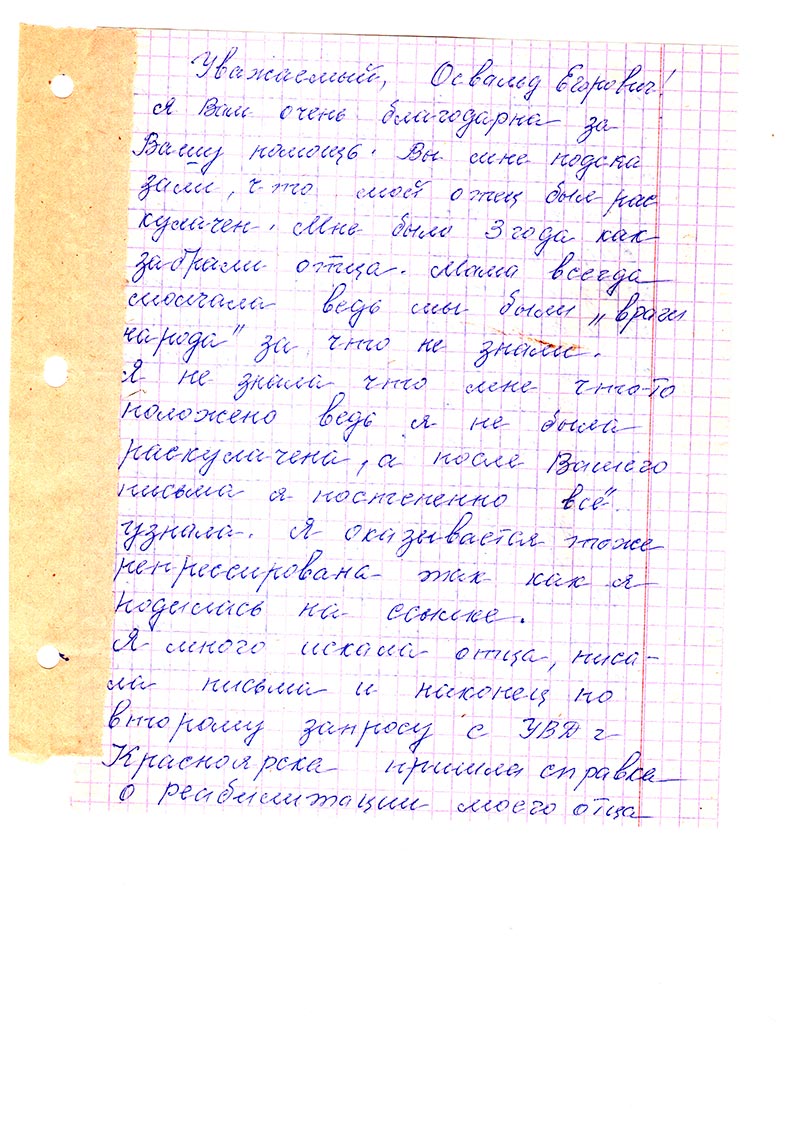 Уважаемый, Освальд Егорович!
Я Вам очень благодарна за
Вашу помощь. Вы мне подска
зали, что мой отец был рас
кулачен. Мне было 3 года как
забрали отца. Мама всегда
молчала ведь мы были „враги
народа" за что не знали.
Я не знала что мне что-то
положено ведь я не была
раскулачена, а после Вашего
письма я постепенно всё
узнала. Я оказывается тоже
репрессирована так как я
родилась на ссылке.
Я много искала отца, писа-
ла письма и наконец по
второму запросу с УВД г
Красноярска пришла справка
о реабилитации моего отца